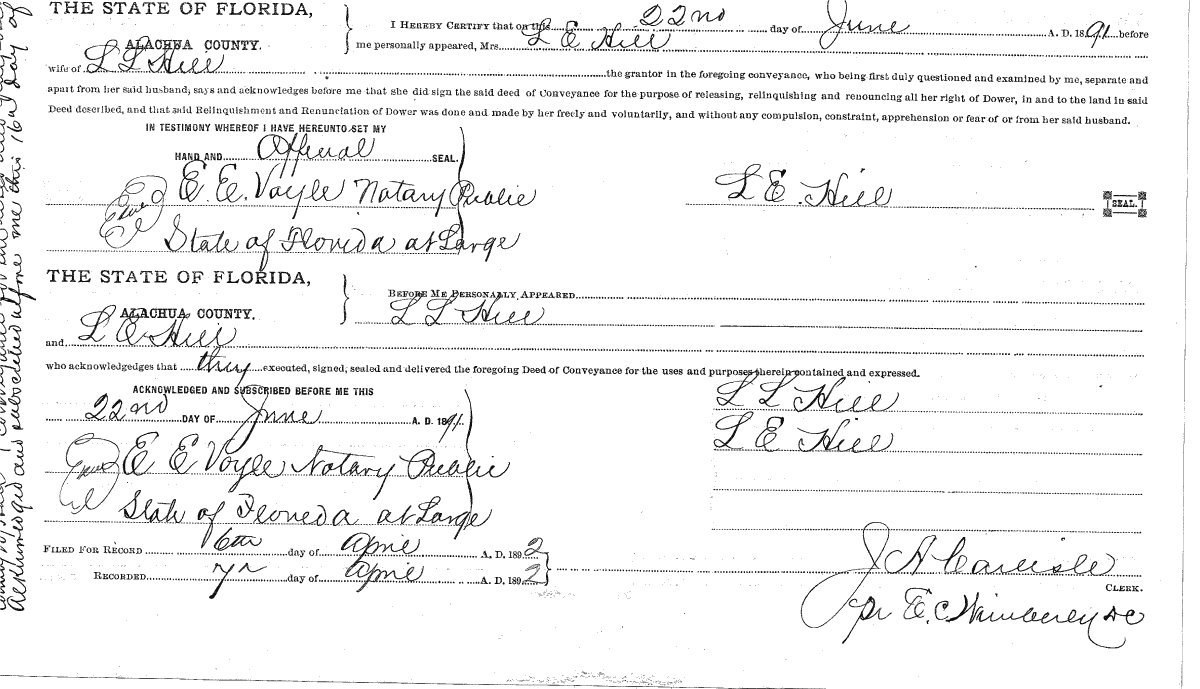 THE STATE OF FLORIDA,
ALACHUA COUNTY.
I HEREBY CERTIFY that on this 22nd day of June A. D. 1891 before
me personally appeared, Mrs. L E Hill
wife of L L Hill the grantor in the foregoing conveyance, who being first duly questioned and examined by me, separate and
apart from her said husband, says and acknowledges before me that she did sign the said deed of Conveyance for the purpose of releasing, relinquishing and renouncing all her right of Dower, in and to the land in said
Deed described, and that said Relinquishment and Renunciation of Dower was done and made by her freely and voluntarily, and without any compulsion, constraint, apprehension or fear of or from her said husband.
IN TESTIMONY WHEREOF I HAVE HEREUNTO SET MY
HAND AND Official SEAL.
E. E. Voyle Notary Public
State of Florida at Large
L E. Hill SEAL.
THE STATE OF FLORIDA,
ALACHUA COUNTY.
BEFORE ME PERSONALLY APPEARED
L L Hill
and L E Hill
who acknowledgedges that they executed, signed, sealed and delivered the foregoing Deed of Conveyance for the uses and purposes therein contained and expressed.
ACKNOWLEDGED AND SUBSCRIBED BEFORE ME THIS
22nd DAY OF June A. D. 1891.
E E Voyle Notary Public
State of Floreda at Large
L L Hill
L E Hill
FILED FOR RECORD 6th day of April A. D. 1892
RECORDED 7th day of April A. D. 1892
J A Carlisle
CLERK.
pr E. C. Wimberly DC
acknowledged and subscribed before me this 16th day of